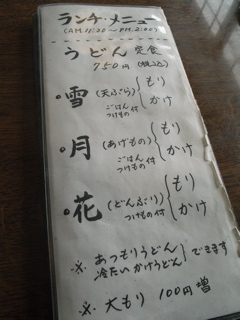 ランチ・メニュー
(AM.11:30〜PM.2:00)
うどん 定食
750円 (税込)
・雪 (天ぷら) もり
ごはん かけ
つけもの付
・月 (あげもの) もり
ごはん かけ
つけもの付
・花 (どんぶり) もり
つけもの付 かけ
※ あつもりうどん
冷たいかけうどん できます
※ 大もり 100円増